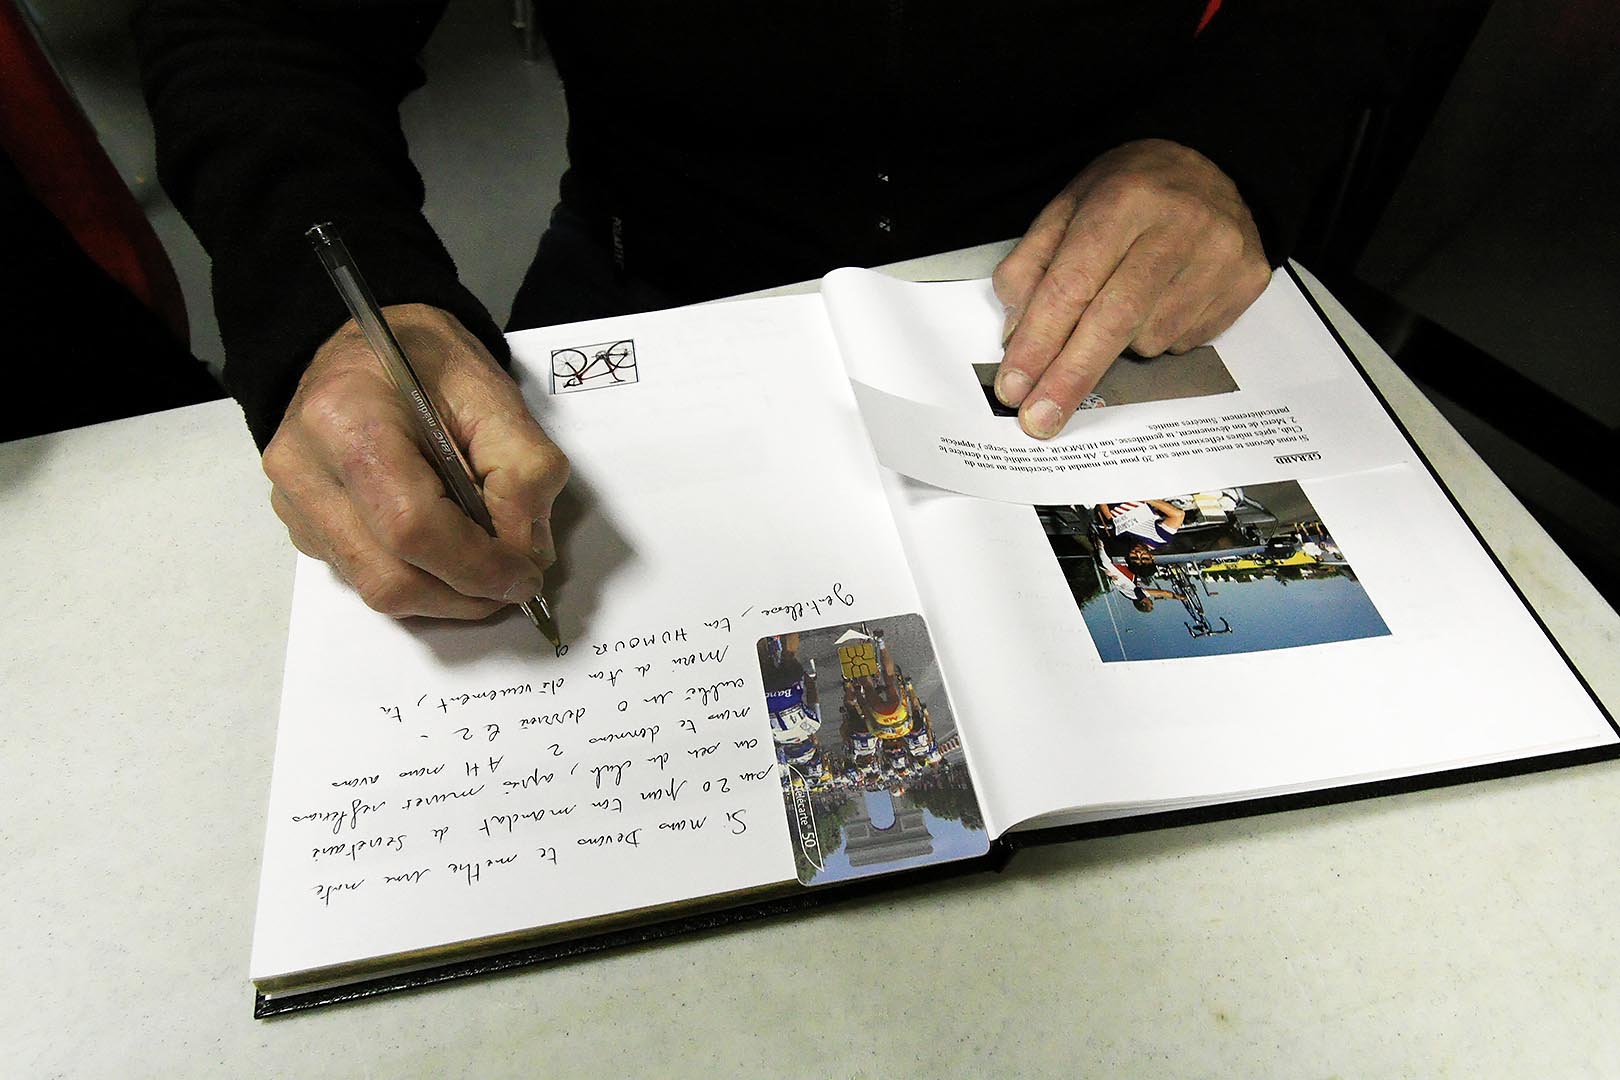 Si nous Devons te mettre une note
sur 20 pour ton mandat de Secretaire
au sein du club, après mures reflexions
nous te donnons 2 AH nous avons
oublié un 0 derrière le 2 -
Merci de ton dévouement, ta
gentillesse, ton HUMOUR q
Télécarte 50
GERARD
Si nous devons te mettre un note sur 20 pour ton mandat de Secrétaire au sein du
Club, après mûres réflexions nous te donnons 2. Ah nous avons oublié un 0 derrière le
2. Merci de ton dévouement, ta gentillesse, ton HUMOUR, que moi Serge j'apprécie
particulièrement. Sincères amitiés
BIC medium
Banc